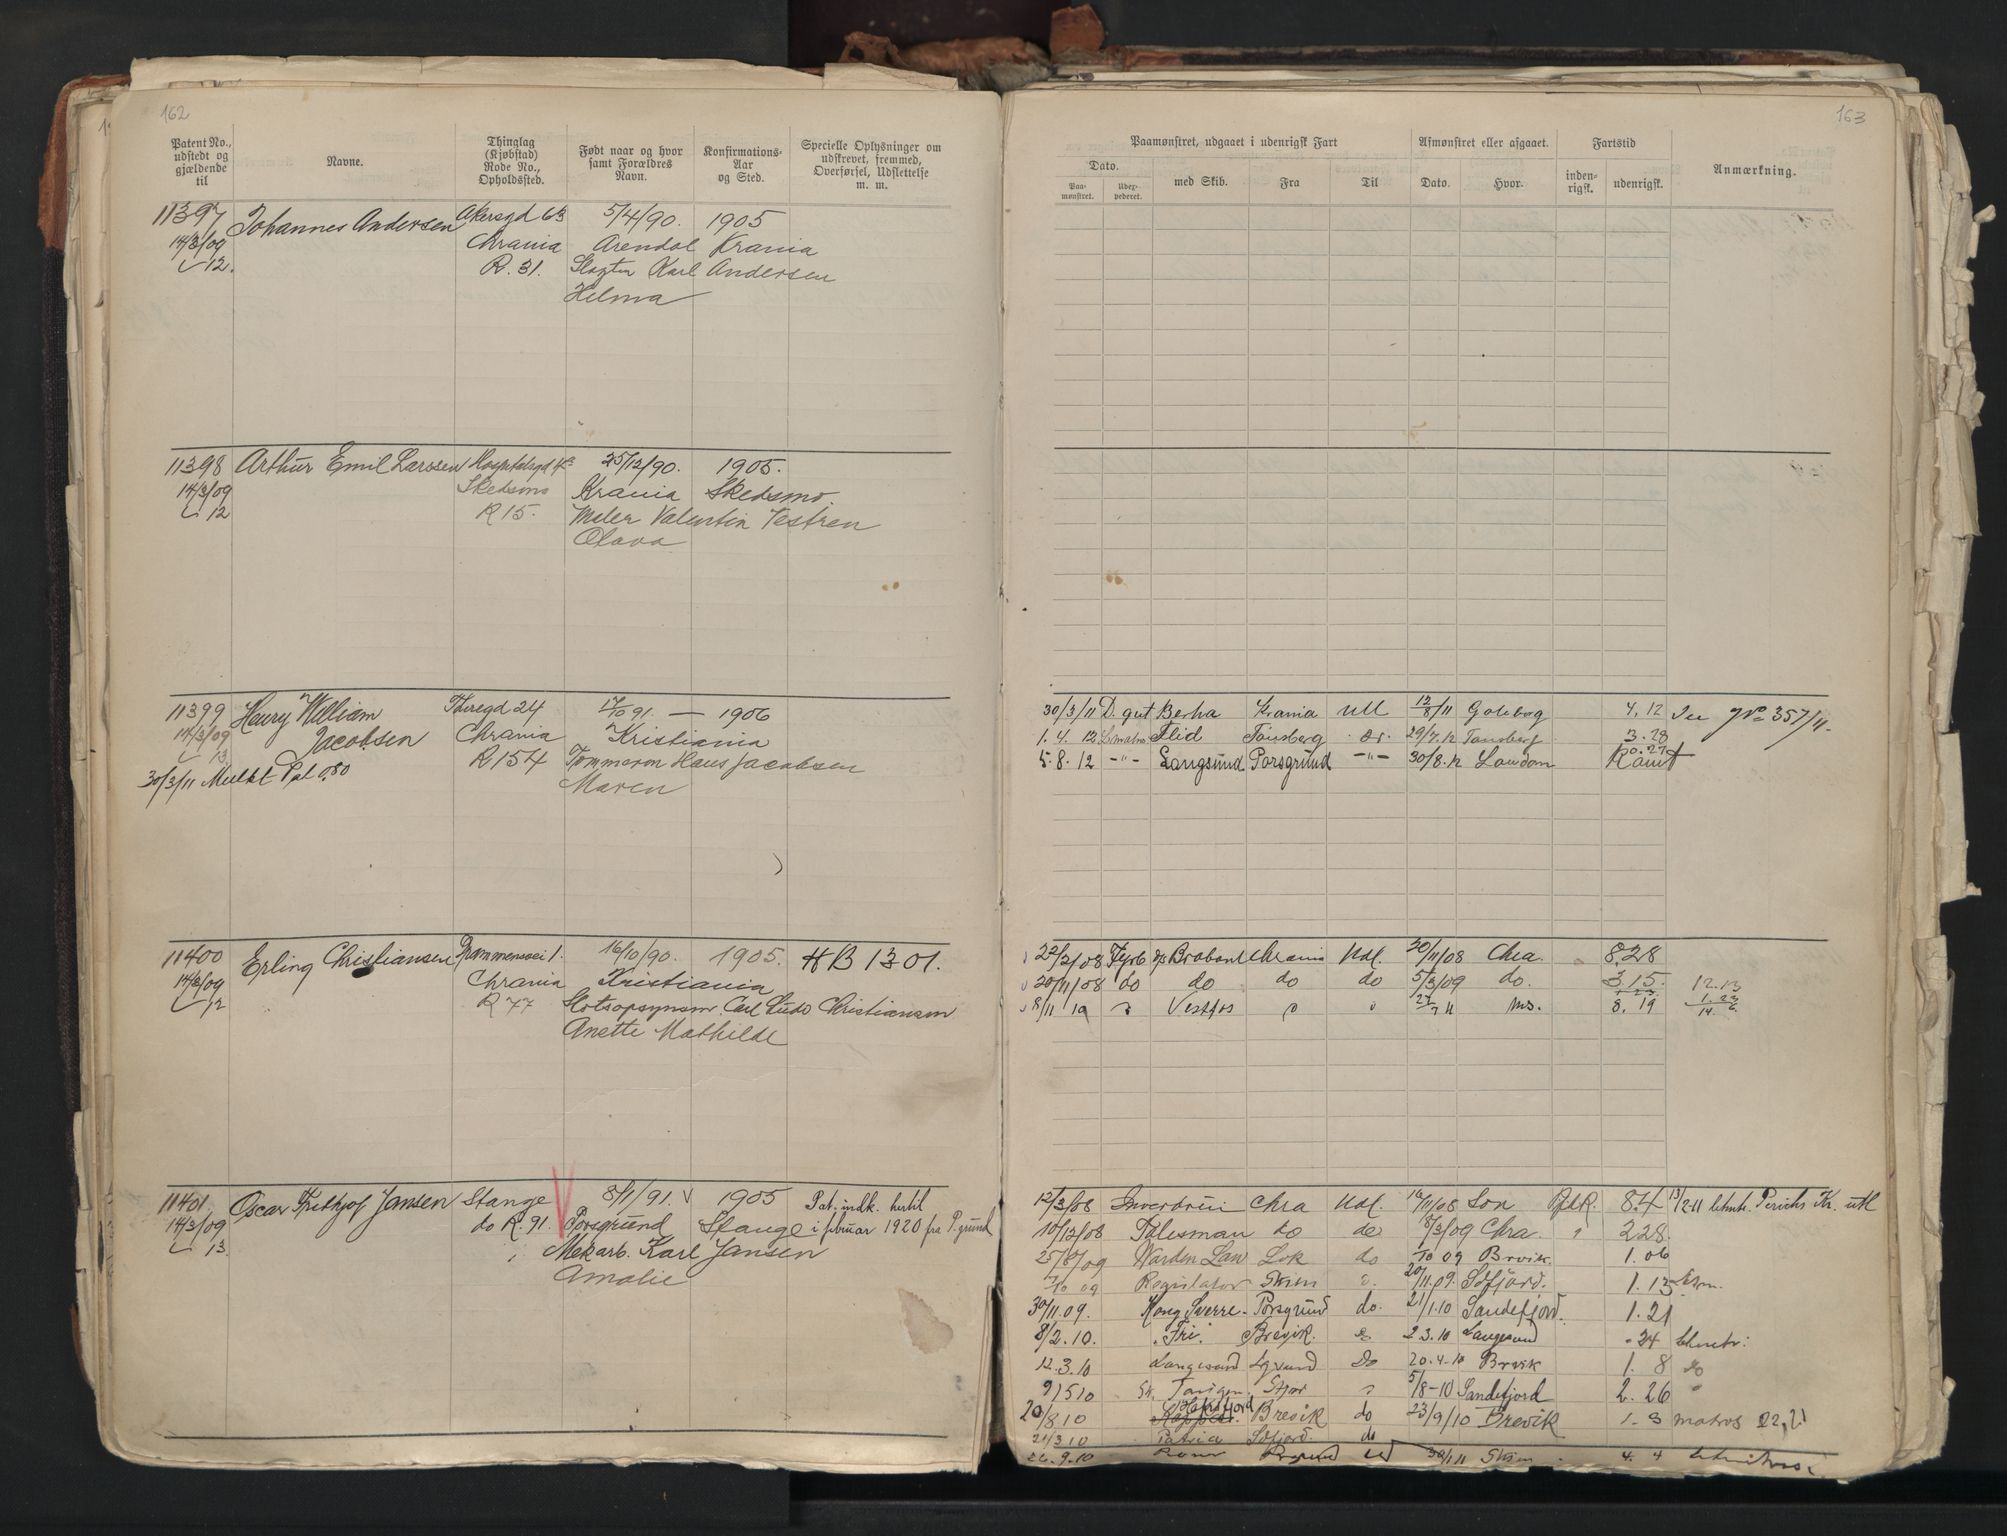 162
Patent No., udstedt og gjældende til
Navne.
Thinglag (Kjøbstad) Rode No., Opholdssted.
Født naar og hvor samt Forældres Navn.
Konfirmations-Aar og Sted.
Specielle Oplysninger om udskrevet, fremmed, Overførsel, Udslettelse m. m.
11397 Johannes Andersen Akersgd 63 5/4/90. 1905
14/3/09 Chrania Arendal Krania
12. R. 31. Slagter Karl Andersen
Helma
11398 Arthur Emil Larssen Hospitalsgd 25/12/90. 1905.
14/3/09 Skedsmo Krania Skedsmo.
12 R 15. Maler Valentin Vestren
Olava
11399 Henry William Toregd 24 17/10 91. — 1906
14/3/09 Jacobsen Chrania Kristiania
13. R 154 Tømmerm Hans Jacobsen
30/3/11 Mulkt Pat 0,80 Maren
11400 Erling Christiansen Drammensvei 1. 16/10/90. 1905. HB 1301.
14/3/09 Chrania Kristiania
12 R 77 Slotsopsynsm. Carl Ludv Christiansen
Anette Mathilde
11401. Oscar Frithjof Jansen Stange 8/1/91. V 1905 Pat. indk. hertil
14/3/09 do R. 91. Porsgrund Stange i februar 1920 fra P.grund
13. Mek arb. Karl Jansen
Amalie
163
Paamønstret, udgaaet i udenrigsk Fart
Afmønstret eller afgaaet.
Fartstid
Dato.
Paamønstret.
Udexpederet.
med Skib.
Fra
Til
Dato.
Hvor.
indenrigsk.
udenrigsk.
Anmærkning.
30/3/11 D. gut Bertha Krania Udl 12/8/11 Goteborg 4, 12 Se No 357/11.
1. 4. 12 L.matr. Flid Tönsberg do. 29/7.12 Tønsberg 3. 28
5. 8. 12 -"- Langsund Porsgrund -"- 30/8.12 London 0.27
Rømt
22/2/08 Fyrb D/S Brabant Chrania Udl. 20/11/08 Chra. 8.28
20/11/08 do do do do 5/3/09 do. 3.15. 12.13
8/11 19 Vestfos 8. 19 1.23
14. 6.
12/3/08 Inverdruie Chra Udl. 10/11/08 Son 8.4
10/12/08 Talesman do do 8/3/09 Chra. 2 28.
25/8/09 Warden Law Lok do 09 Brvik. 1. 06
09 Registator Skien 20/11.09. Sdfjord. 1. 13
30/11.09. Kong Sverre. Porsgrund do. 21/1.10 Sandefjord. 1. 21
8/2.10. "Fri" Brevik. 2 3.10 Langesund - 24
12.3.10 Langesund P.grund Do 20.4.10 Brvik 1. 8 do
9/5 10 5/8-10 Sandefjord 2. 26 "
20/8 10 Brevik do 23/9/10 Brevik 1. 3 matros 22,21
21/3 10 Patria Sdfjord. do
26.9.10 P.grund ud 30/1 11 Skien 4. 4